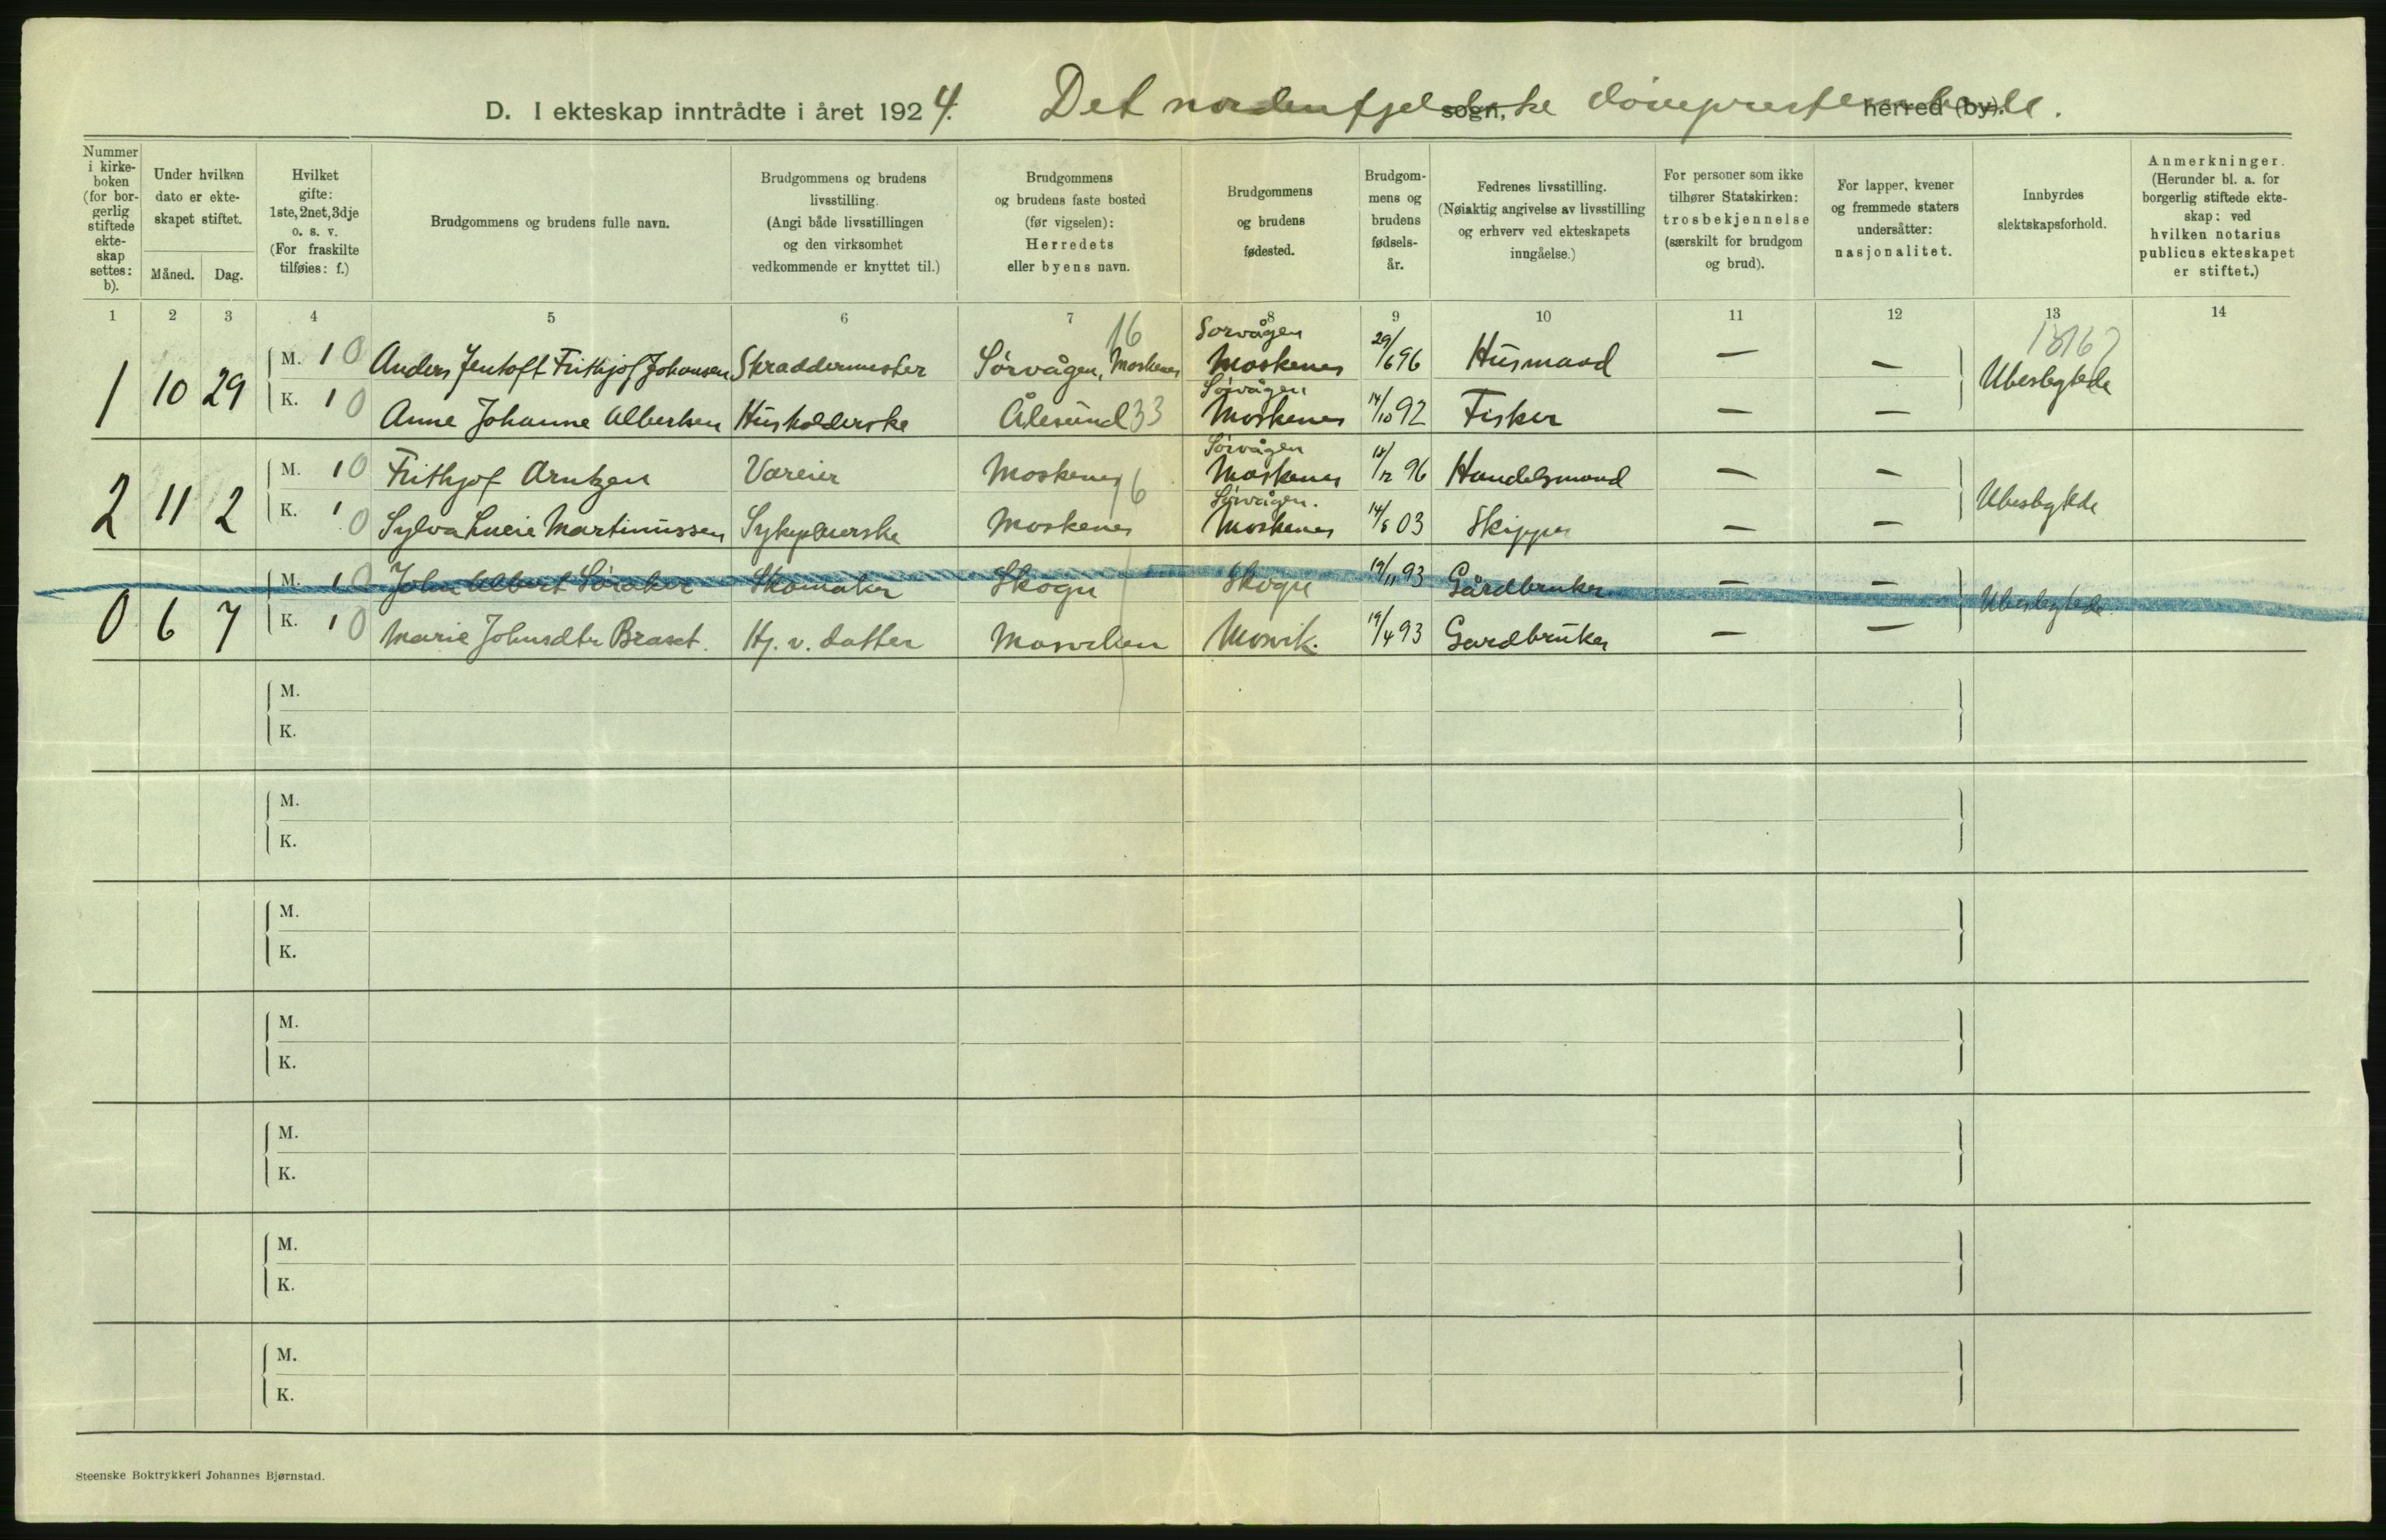 D. I ekteskap inntrådte i året 1924. Det nordenfjelske døveprestembede. sogn, herred (by).
Nummer i kirkeboken (for borgerlig stiftede ekteskap settes: b).
Under hvilken dato er ekteskapet stiftet.
Måned. Dag.
Hvilket gifte: 1ste, 2net, 3dje o. s. v. (For fraskilte tilføies: f.)
Brudgommens og brudens fulle navn.
Brudgommens og brudens livsstilling. (Angi både livsstillingen og den virksomhet vedkommende er knyttet til.)
Brudgommens og brudens faste bosted (før vigselen): Herredets eller byens navn.
Brudgommens og brudens fødested.
Brudgommens og brudens fødselsår.
Fedrenes livsstilling. (Nøiaktig angivelse av livsstilling og erhverv ved ekteskapets inngåelse.)
For personer som ikke tilhører Statskirken: trosbekjennelse (særskilt for brudgom og brud).
For lapper, kvener og fremmede staters undersåtter: nasjonalitet.
Innbyrdes slektskapsforhold.
Anmerkninger. (Herunder bl. a. for borgerlig stiftede ekteskap: ved hvilken notarius publicus ekteskapet er stiftet.)
1 2 3 4 5 6 7 8 9 10 11 12 13 14
16
1 10 29 M. 1 0 Anders Jentoft Frithjof Johansen Skræddermester Sørvågen, Moskenes Sørvågen Moskenes 29/6 96 Husmand — — Ubeslegtede
K. 1 0 Anne Johanne Albertsen Husholderske Ålesund 33 Sørvågen Moskenes 14/10 92 Fisker — —
2 11 2 M. 1 0 Frithjof Arntzen Vareier Moskenes 16 Sørvågen Moskenes 18/12 96 Handelsmand — — Ubeslegtede
K. 1 0 Sylva Lucie Martinussen Sykepleierske Moskenes Sørvågen. Moskenes 14/8 03 Skipper — —
0 6 7 M. 1 0 John Albert Søraker Skomaker Skogn Skogn 19/11 93 Gårdbruker — — Ubeslegtede
K. 1 0 Marie Johnsdtr Braset. Hj. v. datter Mosviken Mosvik. 19/4 93 Gardbruker — —
M.
K.
M.
K.
M.
K.
M.
K.
M.
K.
M.
K.
M.
K.
Steenske Boktrykkeri Johannes Bjørnstad.